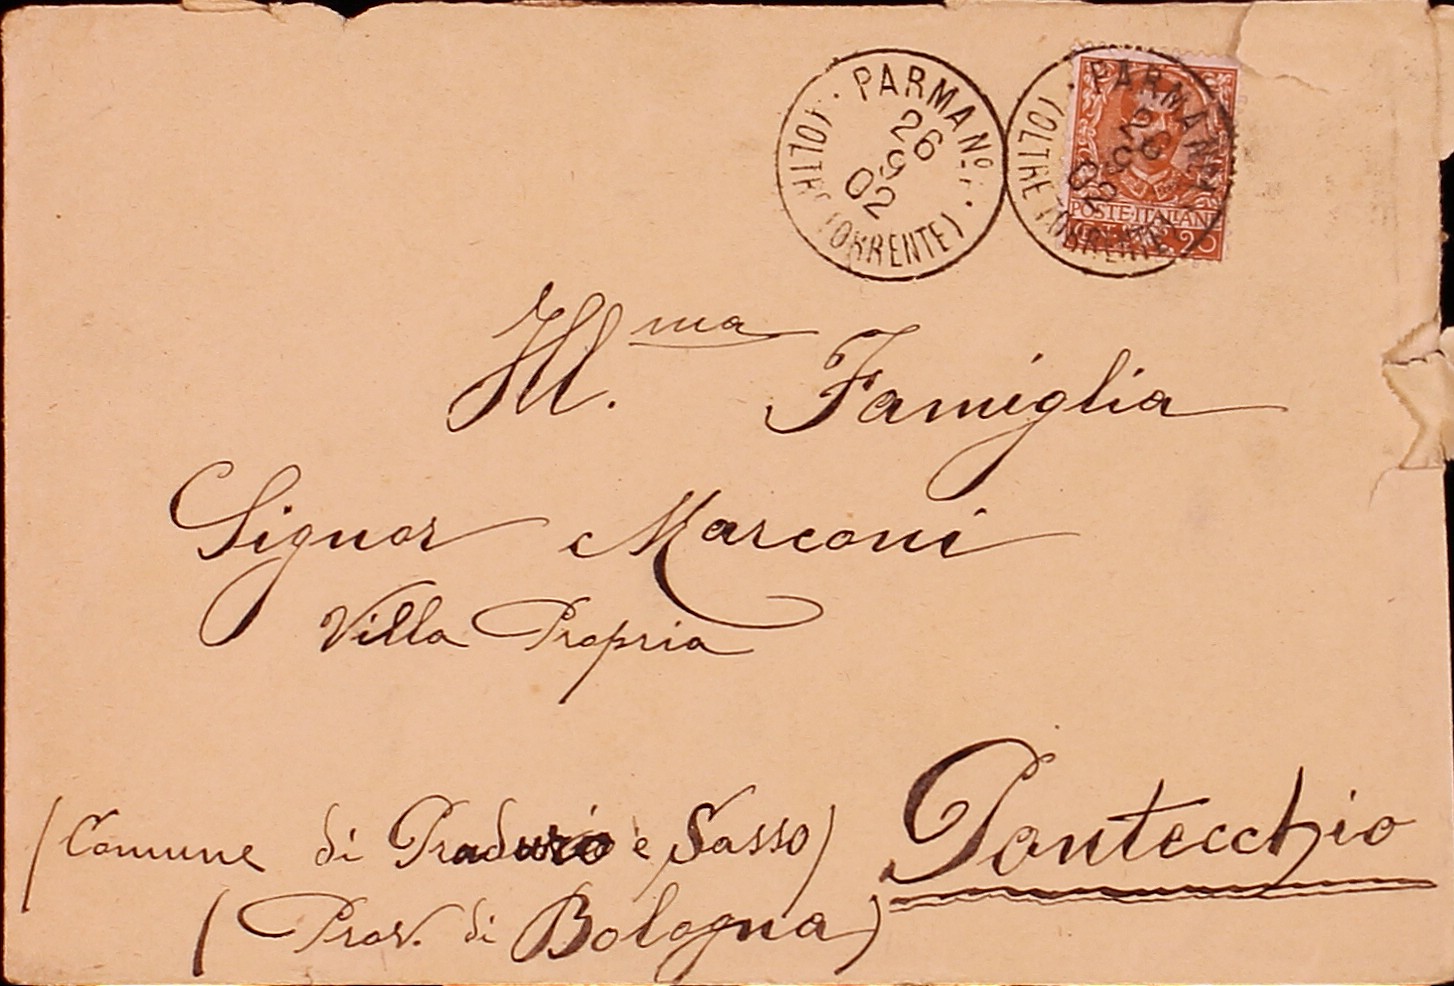 PARMA Nº 1.
26
9
02
(OLTRE TORRENTE)
PARMA Nº 1
26
9
02
(OLTRE TORRENTE)
POSTE·ITALIANE
20
Ill.ma Famiglia
Signor Marconi
Villa Propria
(Comune di Praduro e Sasso) Pontecchio
(Prov. di Bologna)